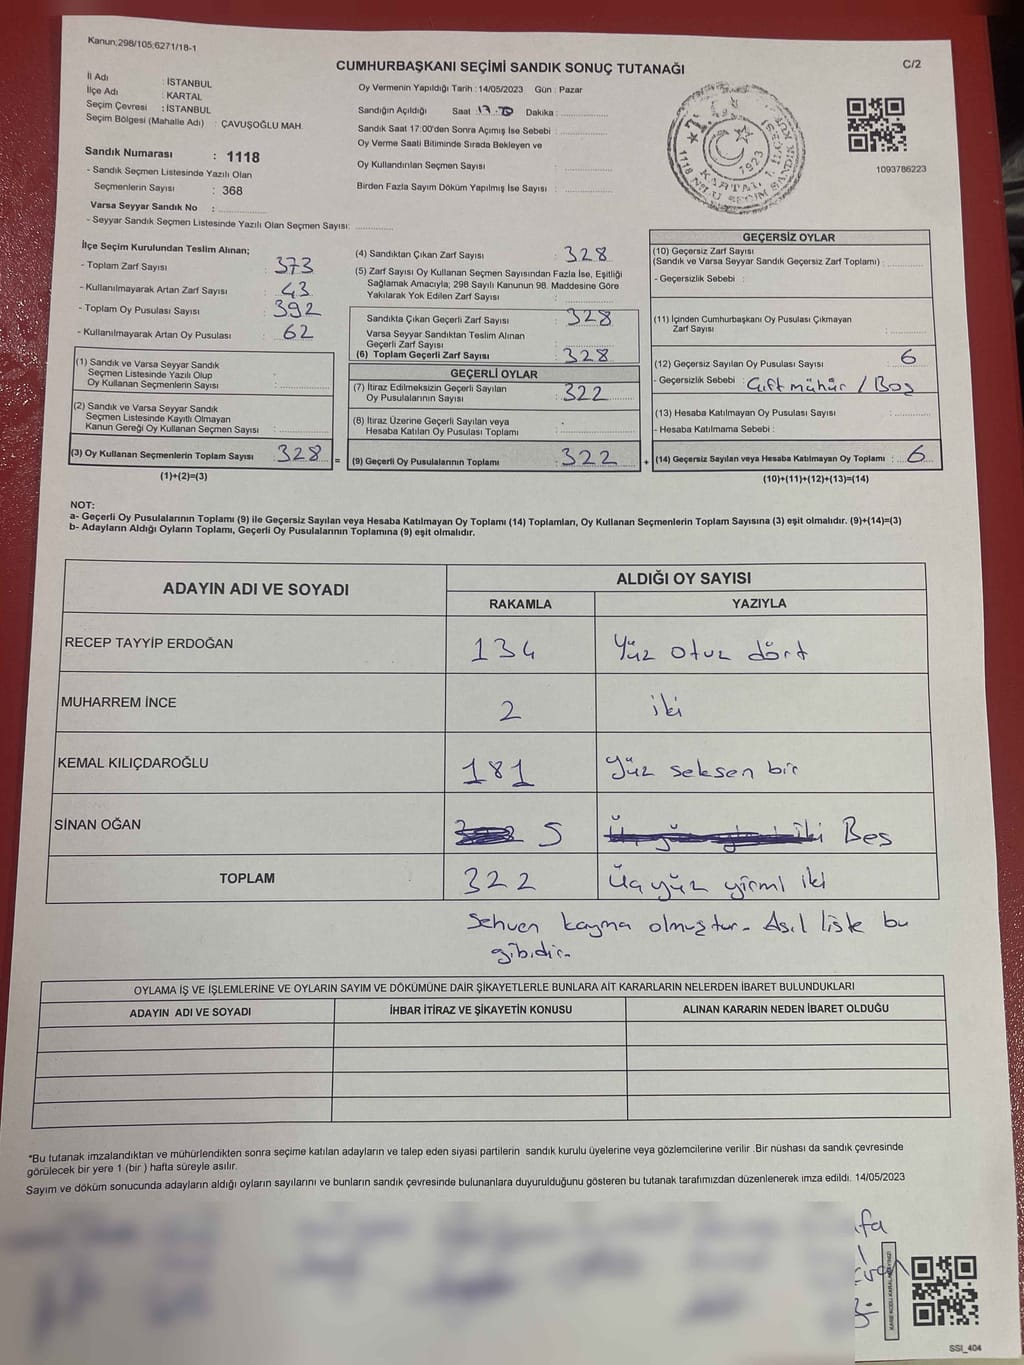 Kanun;298/105;6271/18-1
CUMHURBAŞKANI SEÇİMİ SANDIK SONUÇ TUTANAĞI
C/2
İl Adı : İSTANBUL
İlçe Adı : KARTAL
Seçim Çevresi : İSTANBUL
Seçim Bölgesi (Mahalle Adı) : ÇAVUŞOĞLU MAH.
Sandık Numarası : 1118
- Sandık Seçmen Listesinde Yazılı Olan
Seçmenlerin Sayısı : 368
Varsa Seyyar Sandık No :
- Seyyar Sandık Seçmen Listesinde Yazılı Olan Seçmen Sayısı:
Oy Vermenin Yapıldığı Tarih : 14/05/2023 Gün : Pazar
Sandığın Açıldığı Saat Dakika :
Sandık Saat 17:00'den Sonra Açımış İse Sebebi :
Oy Verme Saati Bitiminde Sırada Bekleyen ve
Oy Kullandırılan Seçmen Sayısı
Birden Fazla Sayım Döküm Yapılmış İse Sayısı :
1118 NOLU SEÇİM SANDIK
KARTAL 1. İLÇESİ
1923
1093786223
İlçe Seçim Kurulundan Teslim Alınan;
- Toplam Zarf Sayısı : 373
- Kullanılmayarak Artan Zarf Sayısı : 43
- Toplam Oy Pusulası Sayısı : 392
- Kullanılmayarak Artan Oy Pusulası : 62
(1) Sandık ve Varsa Seyyar Sandık
Seçmen Listesinde Yazılı Olup
Oy Kullanan Seçmenlerin Sayısı :
(2) Sandık ve Varsa Seyyar Sandık
Seçmen Listesinde Kayıtlı Olmayan
Kanun Gereği Oy Kullanan Seçmen Sayısı :
(3) Oy Kullanan Seçmenlerin Toplam Sayısı : 328 =
(1)+(2)=(3)
(4) Sandıktan Çıkan Zarf Sayısı : 328
(5) Zarf Sayısı Oy Kullanan Seçmen Sayısından Fazla İse, Eşitliği
Sağlamak Amacıyla; 298 Sayılı Kanunun 98. Maddesine Göre
Yakılarak Yok Edilen Zarf Sayısı :
Sandıkta Çıkan Geçerli Zarf Sayısı : 328
Varsa Seyyar Sandıktan Teslim Alınan
Geçerli Zarf Sayısı :
(6) Toplam Geçerli Zarf Sayısı : 328
GEÇERLİ OYLAR
(7) İtiraz Edilmeksizin Geçerli Sayılan
Oy Pusulalarının Sayısı : 322
(8) İtiraz Üzerine Geçerli Sayılan veya
Hesaba Katılan Oy Pusulası Toplamı :
(9) Geçerli Oy Pusulalarının Toplamı : 322 +
GEÇERSİZ OYLAR
(10) Geçersiz Zarf Sayısı
(Sandık ve Varsa Seyyar Sandık Geçersiz Zarf Toplamı) :
- Geçersizlik Sebebi :
(11) İçinden Cumhurbaşkanı Oy Pusulası Çıkmayan
Zarf Sayısı :
(12) Geçersiz Sayılan Oy Pusulası Sayısı : 6
- Geçersizlik Sebebi : Çift mühür / Boş
(13) Hesaba Katılmayan Oy Pusulası Sayısı :
- Hesaba Katılmama Sebebi :
(14) Geçersiz Sayılan veya Hesaba Katılmayan Oy Toplamı : 6
(10)+(11)+(12)+(13)=(14)
NOT:
a- Geçerli Oy Pusulalarının Toplamı (9) ile Geçersiz Sayılan veya Hesaba Katılmayan Oy Toplamı (14) Toplamları, Oy Kullanan Seçmenlerin Toplam Sayısına (3) eşit olmalıdır. (9)+(14)=(3)
b- Adayların Aldığı Oyların Toplamı, Geçerli Oy Pusulalarının Toplamına (9) eşit olmalıdır.
ADAYIN ADI VE SOYADI
ALDIĞI OY SAYISI
RAKAMLA YAZIYLA
RECEP TAYYİP ERDOĞAN 134 Yüz otuz dört
MUHARREM İNCE 2 iki
KEMAL KILIÇDAROĞLU 181 Yüz seksen bir
SİNAN OĞAN 5 Beş
TOPLAM 322 Üçyüz yirmi iki
Sehven kayma olmuştur. Asıl liste bu
gibidir.
OYLAMA İŞ VE İŞLEMLERİNE VE OYLARIN SAYIM VE DÖKÜMÜNE DAİR ŞİKAYETLERLE BUNLARA AİT KARARLARIN NELERDEN İBARET BULUNDUKLARI
ADAYIN ADI VE SOYADI İHBAR İTİRAZ VE ŞİKAYETİN KONUSU ALINAN KARARIN NEDEN İBARET OLDUĞU
*Bu tutanak imzalandıktan ve mühürlendikten sonra seçime katılan adayların ve talep eden siyasi partilerin sandık kurulu üyelerine veya gözlemcilerine verilir .Bir nüshası da sandık çevresinde
görülecek bir yere 1 (bir ) hafta süreyle asılır.
Sayım ve döküm sonucunda adayların aldığı oyların sayılarını ve bunların sandık çevresinde bulunanlara duyurulduğunu gösteren bu tutanak tarafımızdan düzenlenerek imza edildi. 14/05/2023
SSI_404